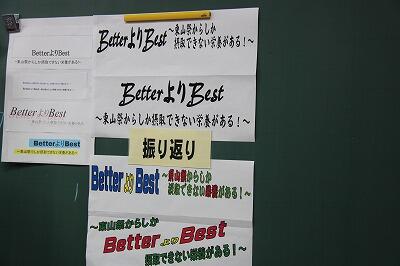 BetterよりBest
～東山祭からしか摂取できない栄養がある！～
BetterよりBest
BetterよりBest
～東山祭からしか摂取できない栄養がある！～
BetterよりBest
～東山祭からしか
摂取できない栄養がある！～
BetterよりBest
～東山祭からしか摂取できない栄養がある！～
振り返り
BetterよりBest
～東山祭からしか
摂取できない栄養がある！～
～東山祭からしか
BetterよりBest
摂取できない栄養がある！～